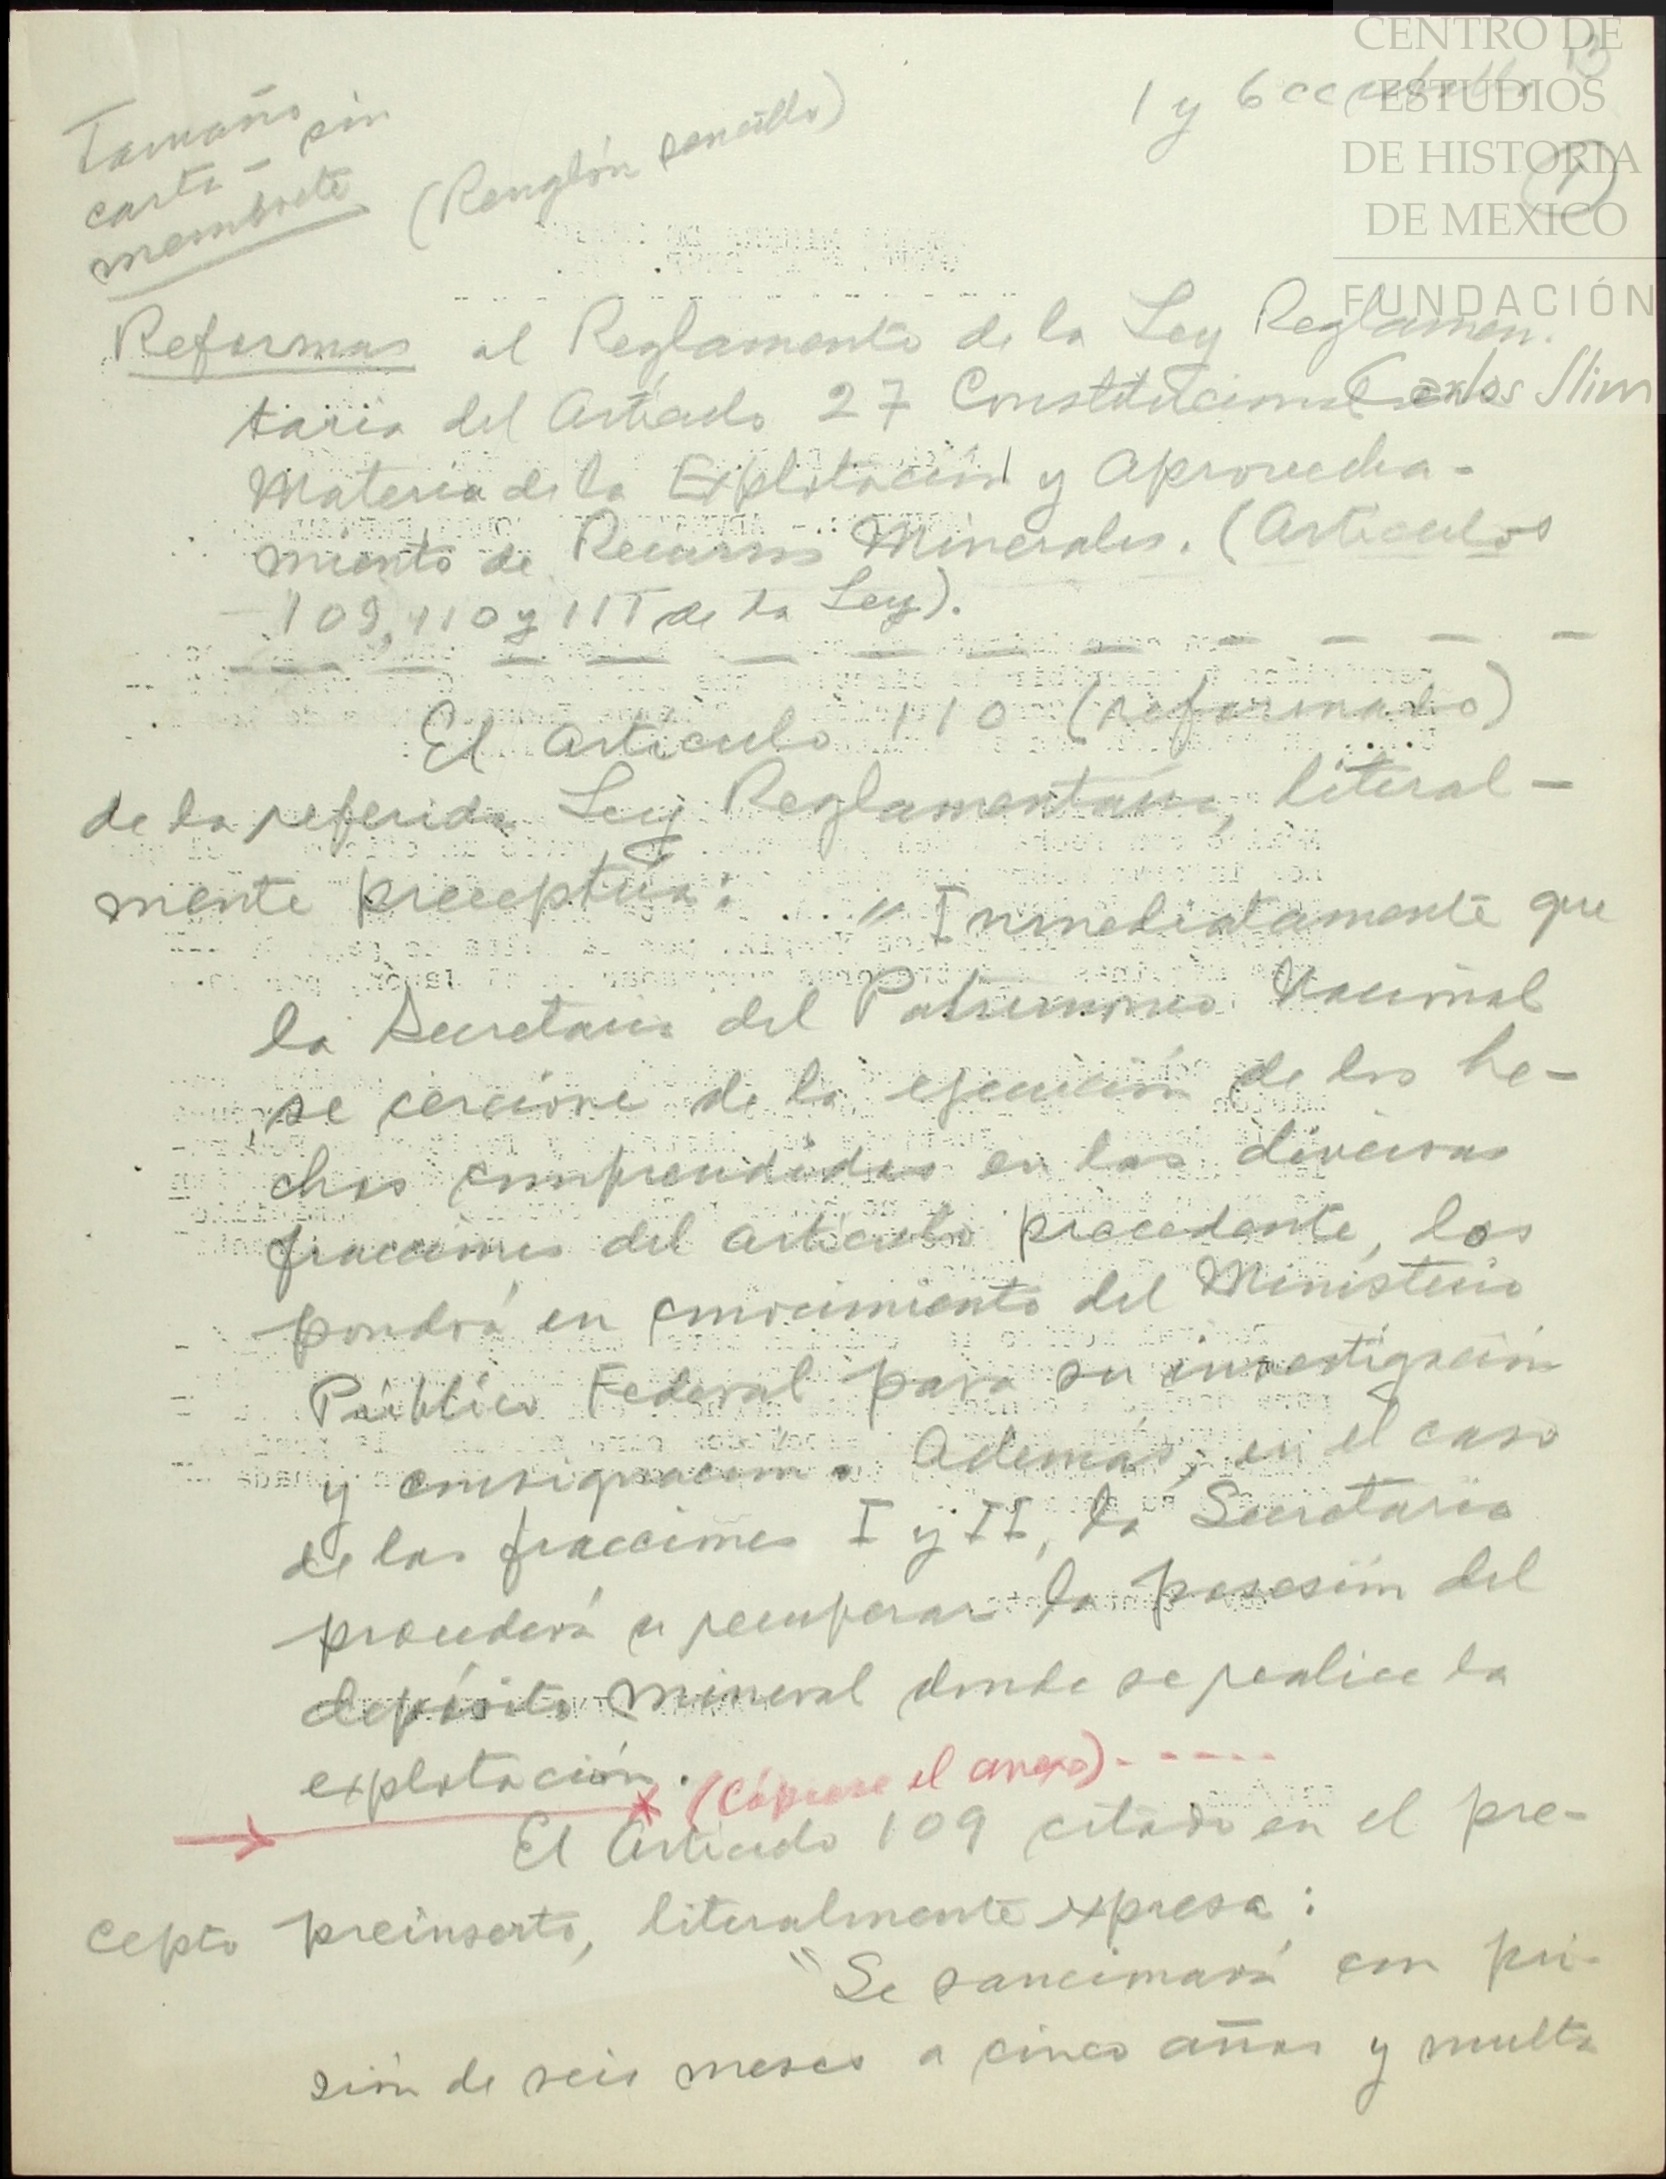 Tamaño
carta - sin
membrete
(Renglón sencillo)
1 y 6 cc
(1)
CENTRO DE
ESTUDIOS
DE HISTORIA
DE MEXICO
FUNDACIÓN
Carlos Slim
Reformas al Reglamento de la Ley Reglamen-
taria del Artículo 27 Constitucional
Materia de la Explotación y Aprovecha-
miento de Recursos Minerales. (Artículos
109, 110 y 111 de la Ley).
El Artículo 110 (reformado)
de la referida Ley Reglamentaria, literal-
mente preceptúa: "Inmediatamente que
la Secretaría del Patrimonio Nacional
se cerciore de la ejecución de los he-
chos comprendidos en las diversas
fracciones del artículo precedente, los
pondrá en conocimiento del Ministerio
Público Federal para su investigación
y consignación. Además, en el caso
de las fracciones I y II, la Secretaría
procederá a recuperar la posesión del
depósito mineral donde se realice la
explotación.
(Cópiese el anexo)- - - - -
El Artículo 109 citado en el pre-
cepto preinserto, literalmente expresa:
"Se sancionará con pri-
sión de seis meses a cinco años y multa